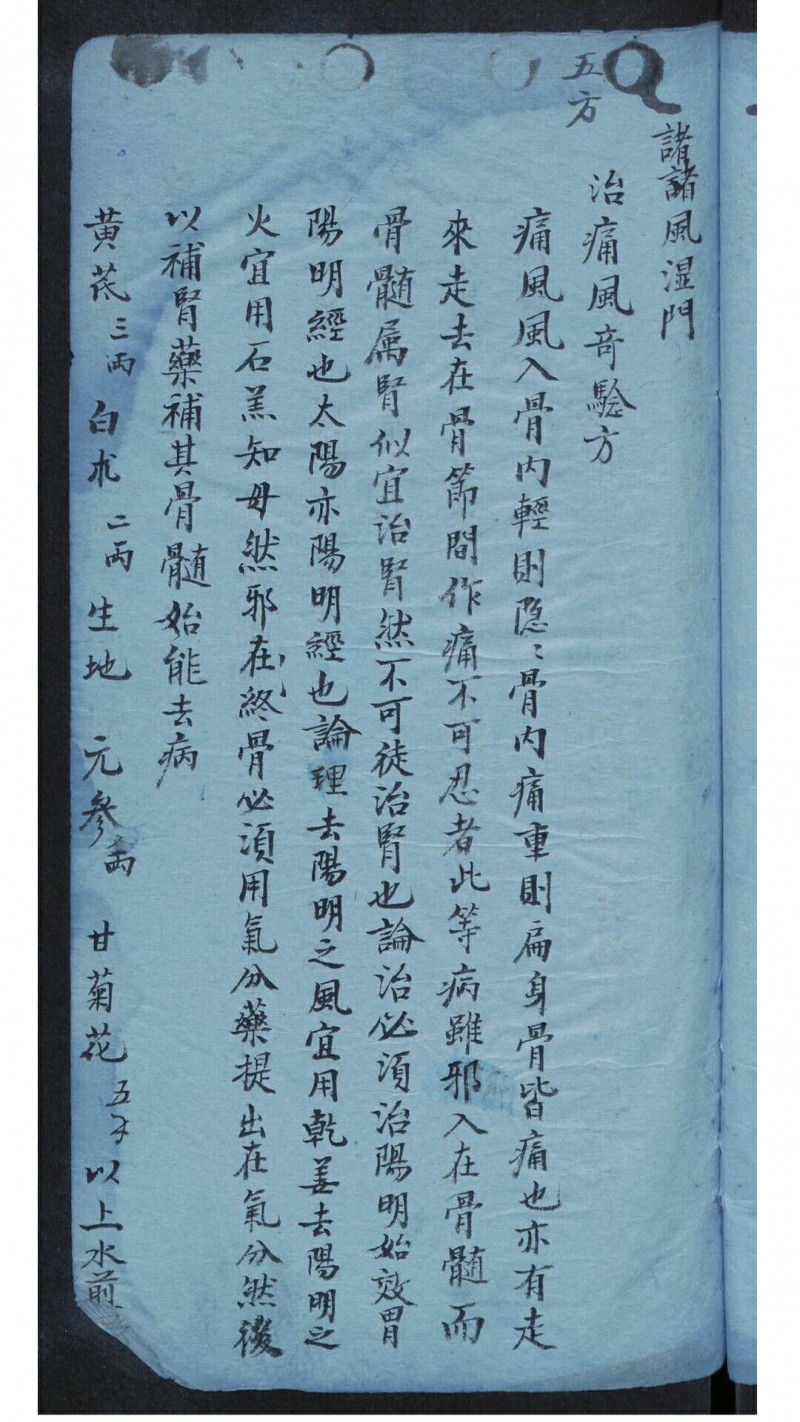 諸諸風濕門
五方
治痛風奇驗方
痛風風入骨內輕則隱〻骨內痛重則扁身骨皆痛也亦有走
來走去在骨節間作痛不可忍者此等病雖邪入在骨髓而
骨髓属腎似宜治腎然不可徒治腎也論治必湏治陽明始效胃
陽明經也太陽亦陽明經也論理去陽明之風宜用乾姜去陽明之
火宜用石羔知母然邪在終骨必湏用氣分藥提出在氣分然後
以補腎藥補其骨髓始能去病
黃芪三両 白朮二両 生地 元參両 甘菊花五予 以上水前